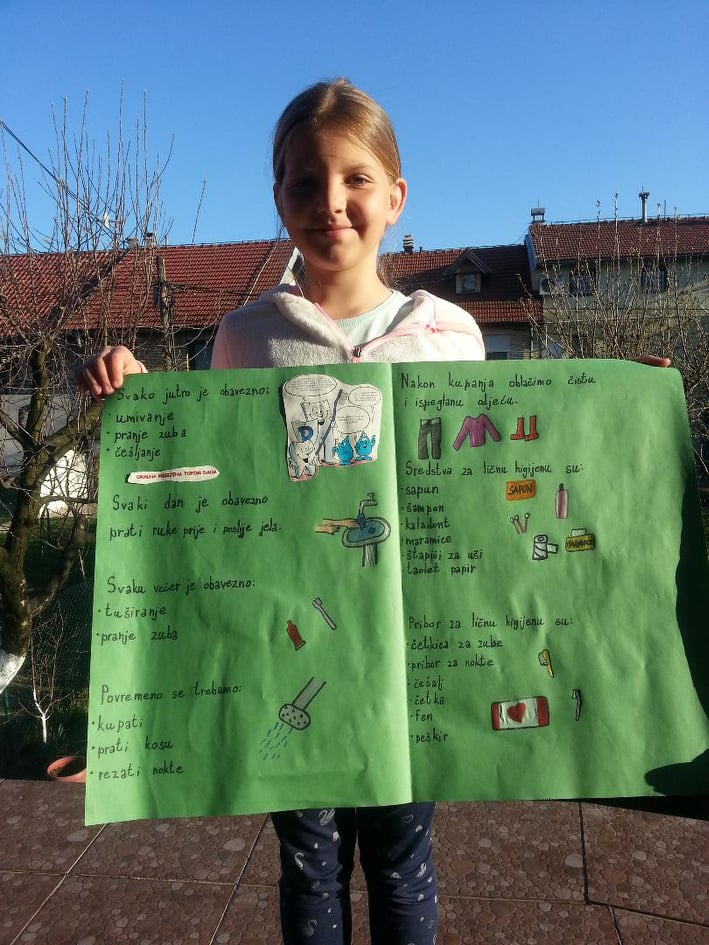 Svako jutro je obavezno:
· umivanje
· pranje zuba
· češljanje
ORALNA HIGIJENA TOKOM DANA
Svaki dan je obavezno
prati ruke prije i poslije jela.
Svaku večer je obavezno:
· tuširanje
· pranje zuba
Povremeno se trebamo:
· kupati
· prati kosu
· rezati nokte
Nakon kupanja oblačimo čistu
i ispeglanu odjeću.
Sredstva za ličnu higijenu su:
· sapun
SAPUN
· šampon
· kaladont
· maramice
· štapići za uši
· taolet papir
Pribor za ličnu higijenu su:
· četkica za zube
· pribor za nokte
· češalj
· četka
· fen
· peškir